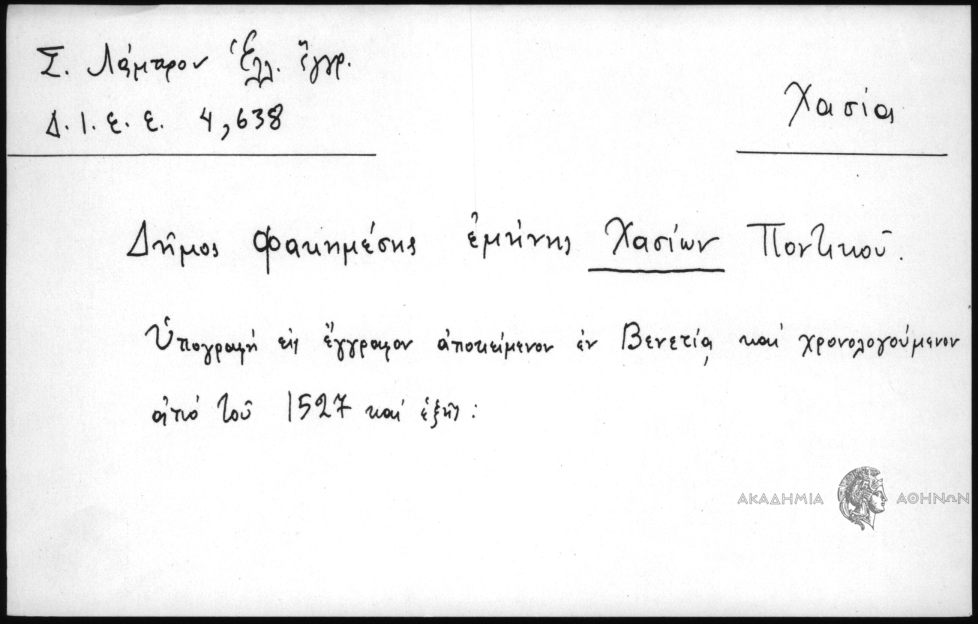 Σ. Λάμπρου Ἑλλ. ἔγγρ.
Δ.Ι.Ε.Ε. 4,638
Χασία
Δῆμος Φακημέσης ἐμήνης Χασίων Ποντικοῦ.
Ὑπογραφή εἰς ἔγγραφον ἀποκείμενον ἐν Βενετίᾳ καί χρονολογούμενον
ἀπό τοῦ 1527 καί ἑξῆς:
ΑΚΑΔΗΜΙΑ ΑΘΗΝΩΝ